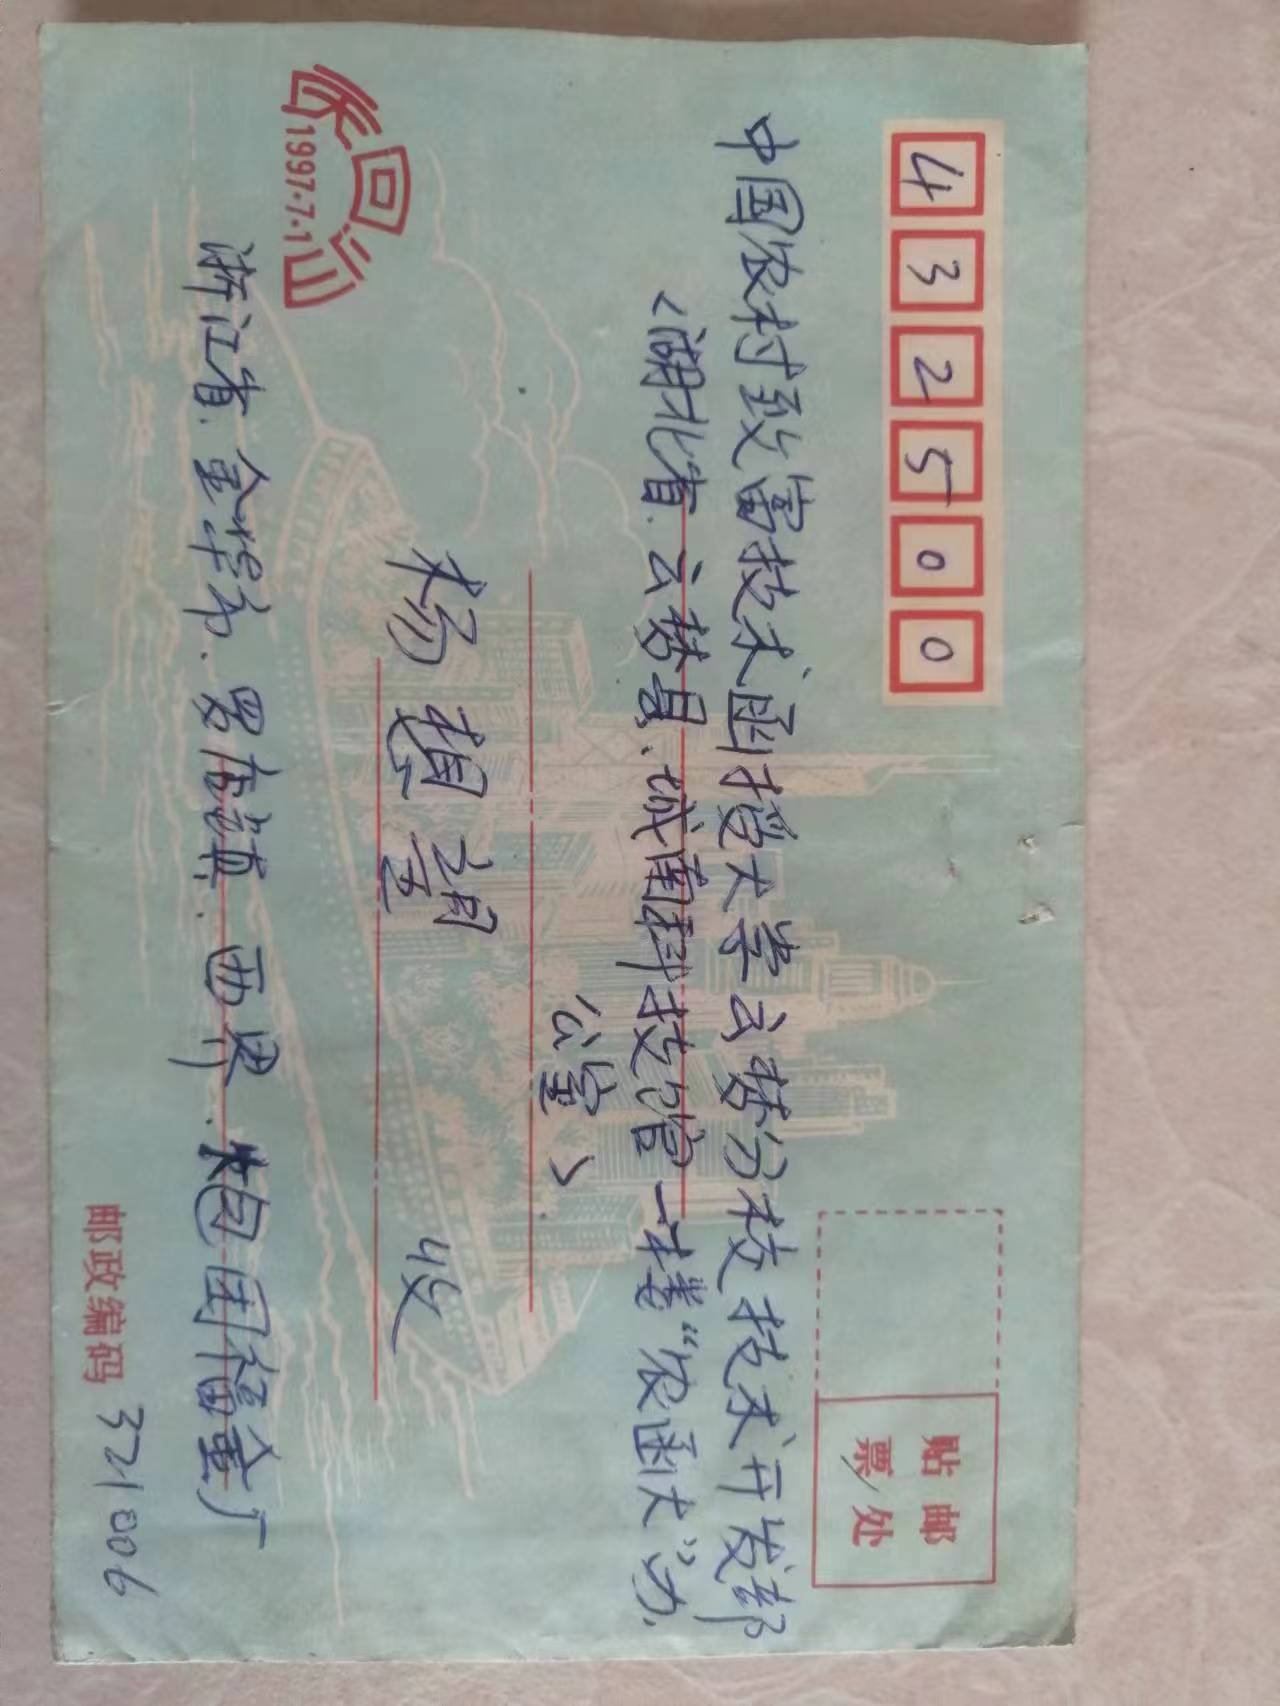 432500
贴邮
票处
中国农村致富技术函授大学云梦分校技术开发部
<湖北省.云梦县.城南科技馆一楼“农函大”办
公室>
杨想望 收
回
1997·7·1
浙江省.金华市.罗店镇.西界.
邮政编码 321006